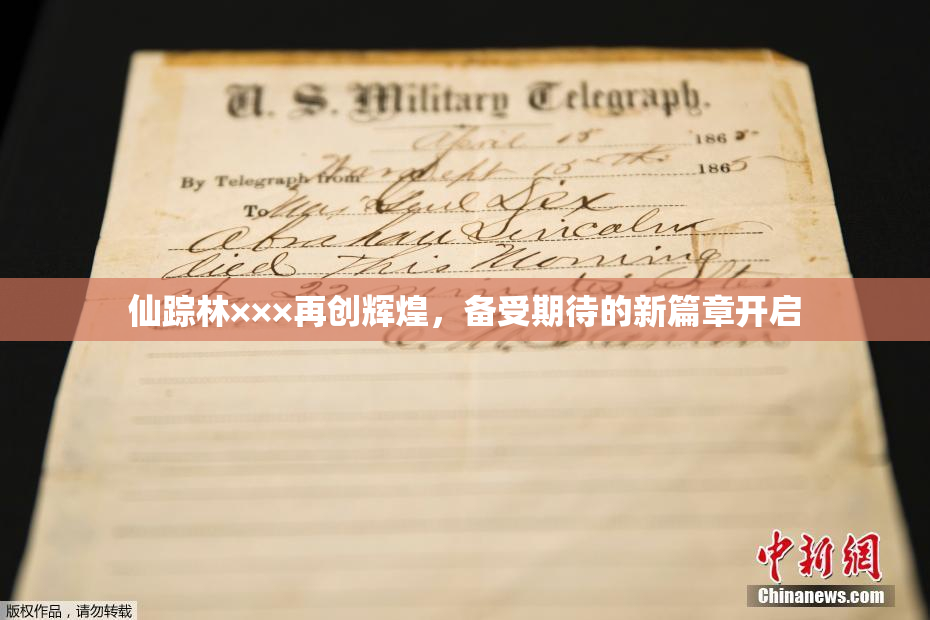 U. S. Military Telegraph.
April 15 1865
By Telegraph from War Dept 15th 1865
To Maj Genl Dix
Abraham Lincoln
died This Morning
at 22 minutes after
仙踪林×××再创辉煌，备受期待的新篇章开启
E. M. Stanton
中新网
Chinanews.com
版权作品，请勿转载